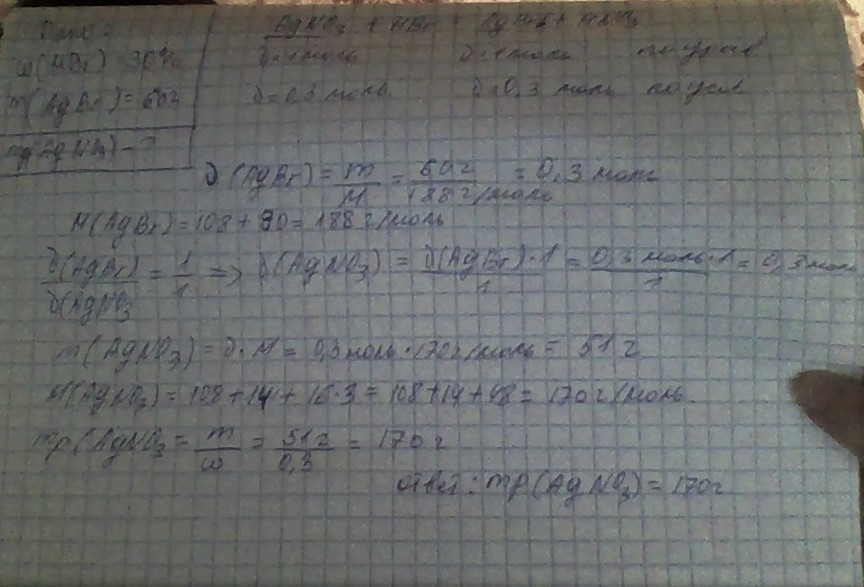 Дано:
w(HBr) 30%
m(AgBr)=60г
mр(AgNO3) - ?
AgNO3 + HBr = AgBr↓ + HNO3
∂=1моль ∂=1моль по урав.
∂=0,3 моль. ∂=0,3 моль по усл
∂(AgBr)= m/M = 60г/188г/моль = 0,3 моль
M(AgBr)=108+80=188г/моль
∂(AgBr)/∂(AgNO3 = 1/1 => ∂(AgNO3) = ∂(AgBr)·1/1 = 0,3 моль·1/1 = 0,3моль
m(AgNO3)=∂·M = 0,3моль·170г/моль= 51г
M(AgNO3)=108+14+16·3=108+14+48= 170г/моль.
mр(AgNO3 = m/ω = 51г/0,3 = 170г
ответ: mр(AgNO3)=170г